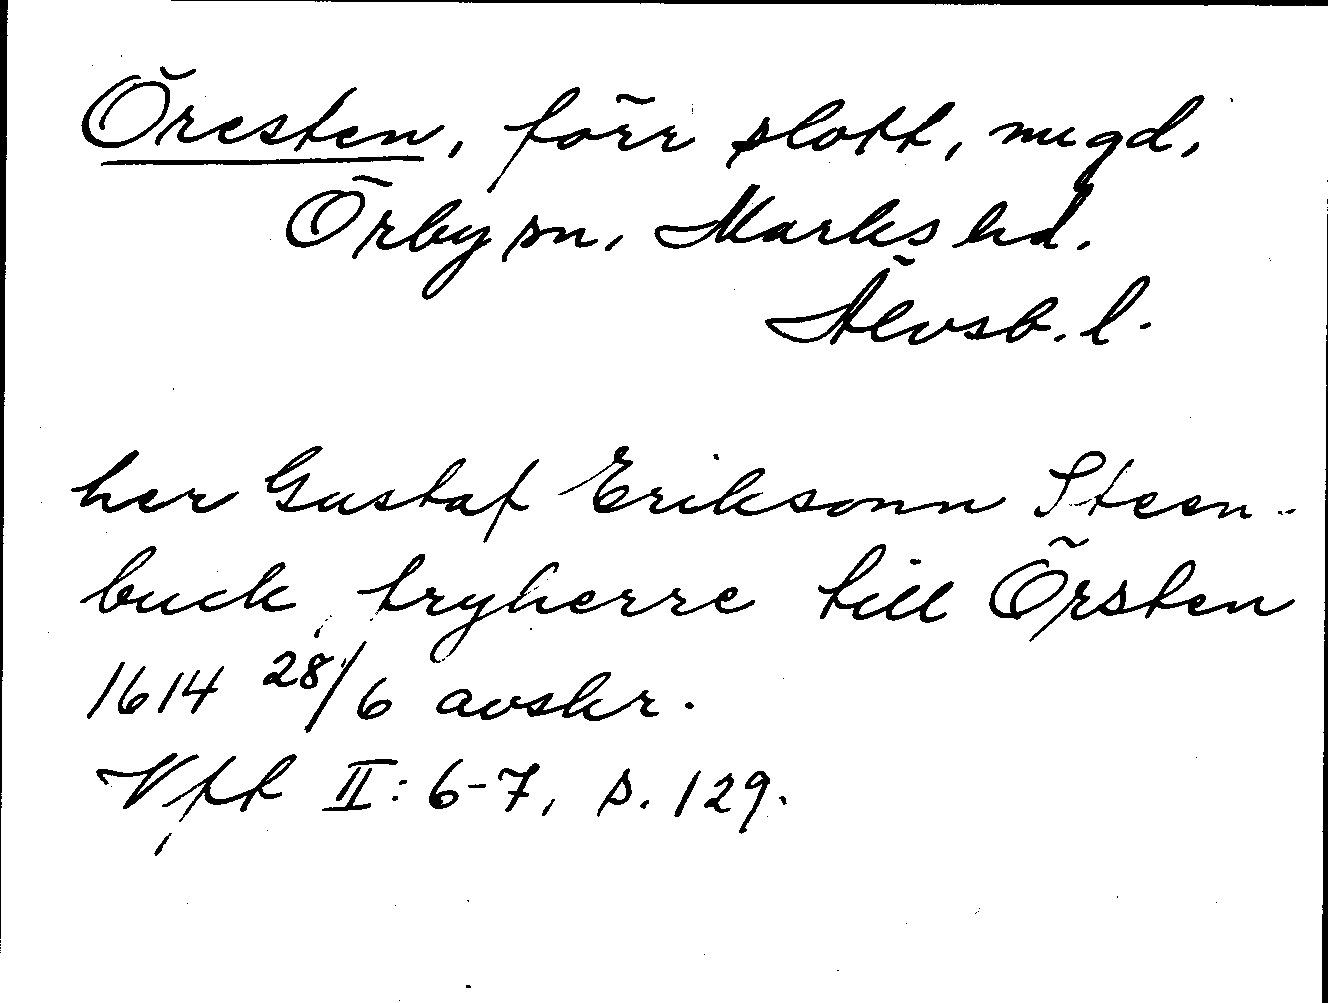 Öresten, förr slott, nu gd,
Örby sn, Marks hd.
Älvsb. l.
her Gustaf Eriksonn Steen-
buck, fryherre till Örsten
1614 28/6 avskr.
Vft II: 6-7, s. 129.